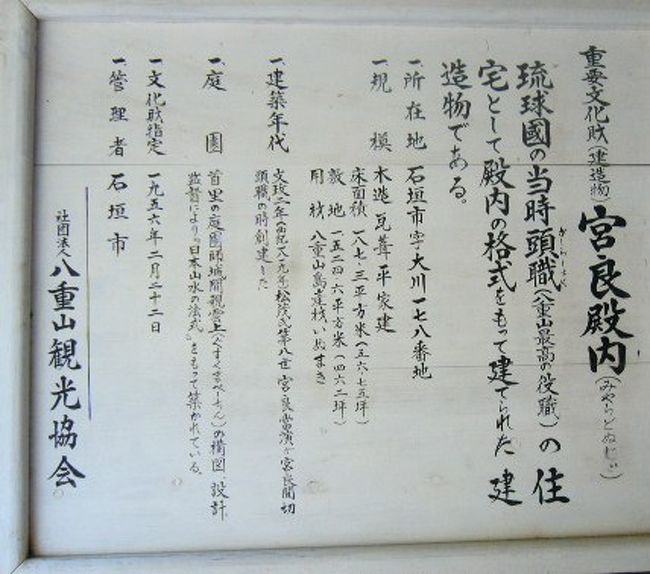 重要文化財(建造物)宮良殿内(みやらどぬじぃ)
琉球國の当時頭職(八重山最高の役職)の住
宅として殿内の格式をもって建てられた建
造物である。
一、所在地 石垣市字大川一七八番地
一、規模 木造瓦葺平家建
床面積 一八七・三平方米(五六・七五坪)
敷地 一五二四・六平方米(四六二坪)
用材 八重山島産材いぬまき
一、建築年代 文政二年(西紀一八一九年)松茂氏第八世宮良當演が宮良間切
頭職の時創建した
一、庭園 首里の庭園師城間親雲上(ぐすくまぺーちん)の構図、設計、
監督により「日本山水の法式」をもって築かれている。
一、文化財指定 一九五六年二月二十二日
一、管理者 石垣市
社団法人八重山観光協会